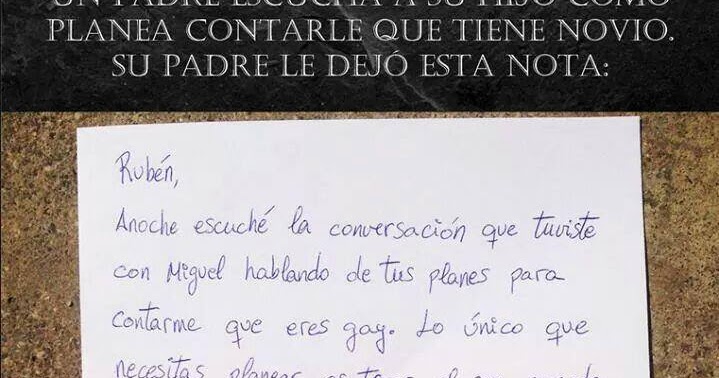 UN PADRE ESCUCHA A SU HIJO COMO
PLANEA CONTARLE QUE TIENE NOVIO.
SU PADRE LE DEJÓ ESTA NOTA:
Rubén,
Anoche escuché la conversación que tuviste
con Miguel hablando de tus planes para
contarme que eres gay. Lo único que
necesitas planear